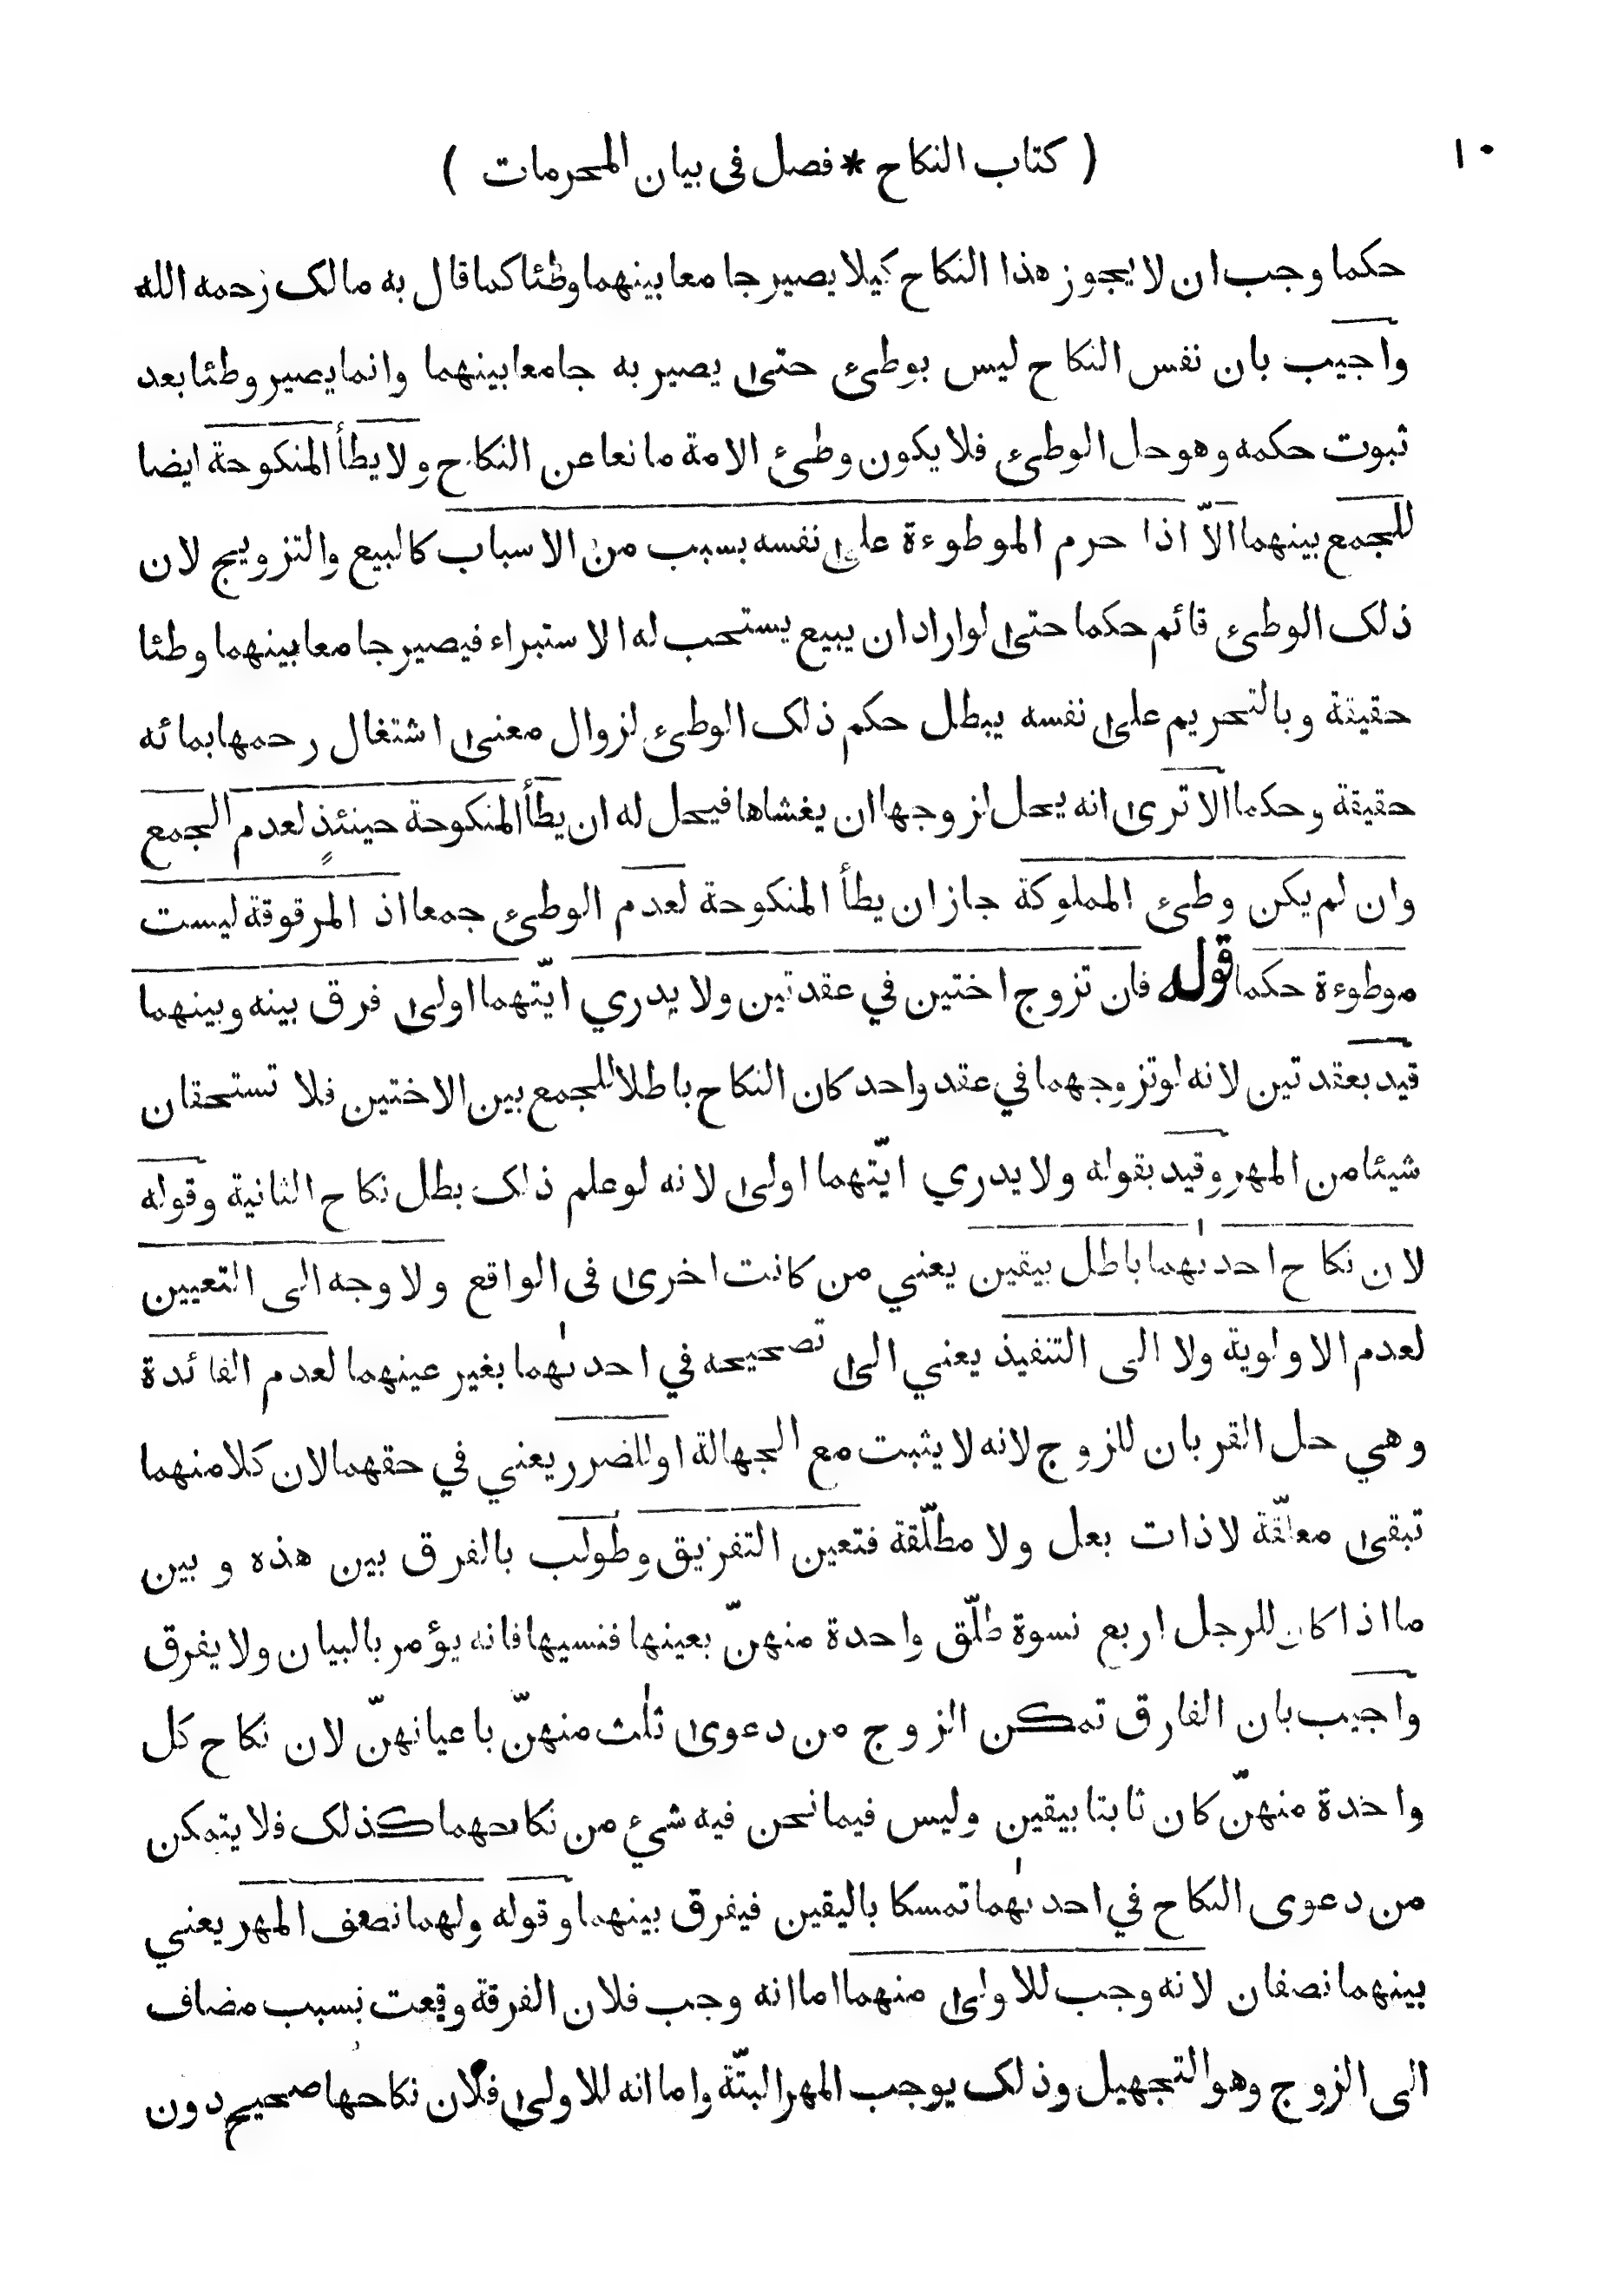 ١٠
( كتاب النكاح * فصل فى بيان المحرمات )
حكما وجب ان لا يجوز هذا النكاح كيلا يصير جامعا بينهما وطئا كما قال به مالك رحمه الله
واجيب بان نفس النكاح ليس بوطئ حتى يصير به جامعا بينهما وانما يصير وطئا بعد
ثبوت حكمه وهو حل الوطئ فلا يكون وطئ الامة مانعا عن النكاح ولا يطأ المنكوحة ايضا
للجمع بينهما الاّ اذا حرم الموطوءة على نفسه بسبب من الاسباب كالبيع والتزويج لان
ذلك الوطئ قائم حكما حتى لو اراد ان يبيع يستحب له الاستبراء فيصير جامعا بينهما وطئا
حقيقة وبالتحريم على نفسه يبطل حكم ذلك الوطئ لزوال معنى اشتغال رحمها بمائه
حقيقة وحكما الا ترى انه يحل لزوجها ان يغشاها فيحل له ان يطأ المنكوحة حينئذٍ لعدم الجمع
وان لم يكن وطئ المملوكة جاز ان يطأ المنكوحة لعدم الوطئ جمعا اذ المرقوقة ليست
موطوءة حكما قوله فان تزوج اختين في عقدتين ولا يدري ايّتهما اولى فرق بينه وبينهما
قيد بعقدتين لانه لو تزوجهما في عقد واحد كان النكاح باطلا للجمع بين الاختين فلا تستحقان
شيئا من المهر وقيد بقوله ولا يدري ايّتهما اولى لانه لو علم ذلك بطل نكاح الثانية وقوله
لان نكاح احدٰىهما باطل بيقين يعني من كانت اخرى فى الواقع ولا وجه الى التعيين
لعدم الاولوية ولا الى التنفيذ يعني الى تصحيحه في احدٰىهما بغير عينهما لعدم الفائدة
وهي حل القربان للزوج لانه لا يثبت مع الجهالة او للضرر يعني في حقهما لان كلا منهما
تبقى معلّقة لا ذات بعل ولا مطلّقة فتعين التفريق وطولب بالفرق بين هذه و بين
ما اذا كان للرجل اربع نسوة طلّق واحدة منهنّ بعينها فنسيها فانه يؤمر بالبيان ولا يفرق
واجيب بان الفارق تمكن الزوج من دعوى ثلٰث منهنّ باعيانهنّ لان نكاح كل
واحدة منهنّ كان ثابتا بيقين وليس فيما نحن فيه شيء من نكاحهما كذلك فلا يتمكن
من دعوى النكاح في احدٰىهما تمسكا باليقين فيفرق بينهما وقوله ولهما نصف المهر يعني
بينهما نصفان لانه وجب للاولى منهما اما انه وجب فلان الفرقة وقعت بسبب مضاف
الى الزوج وهو التجهيل وذلك يوجب المهر البتّة واما انه للاولى فلان نكاحها صحيح دون